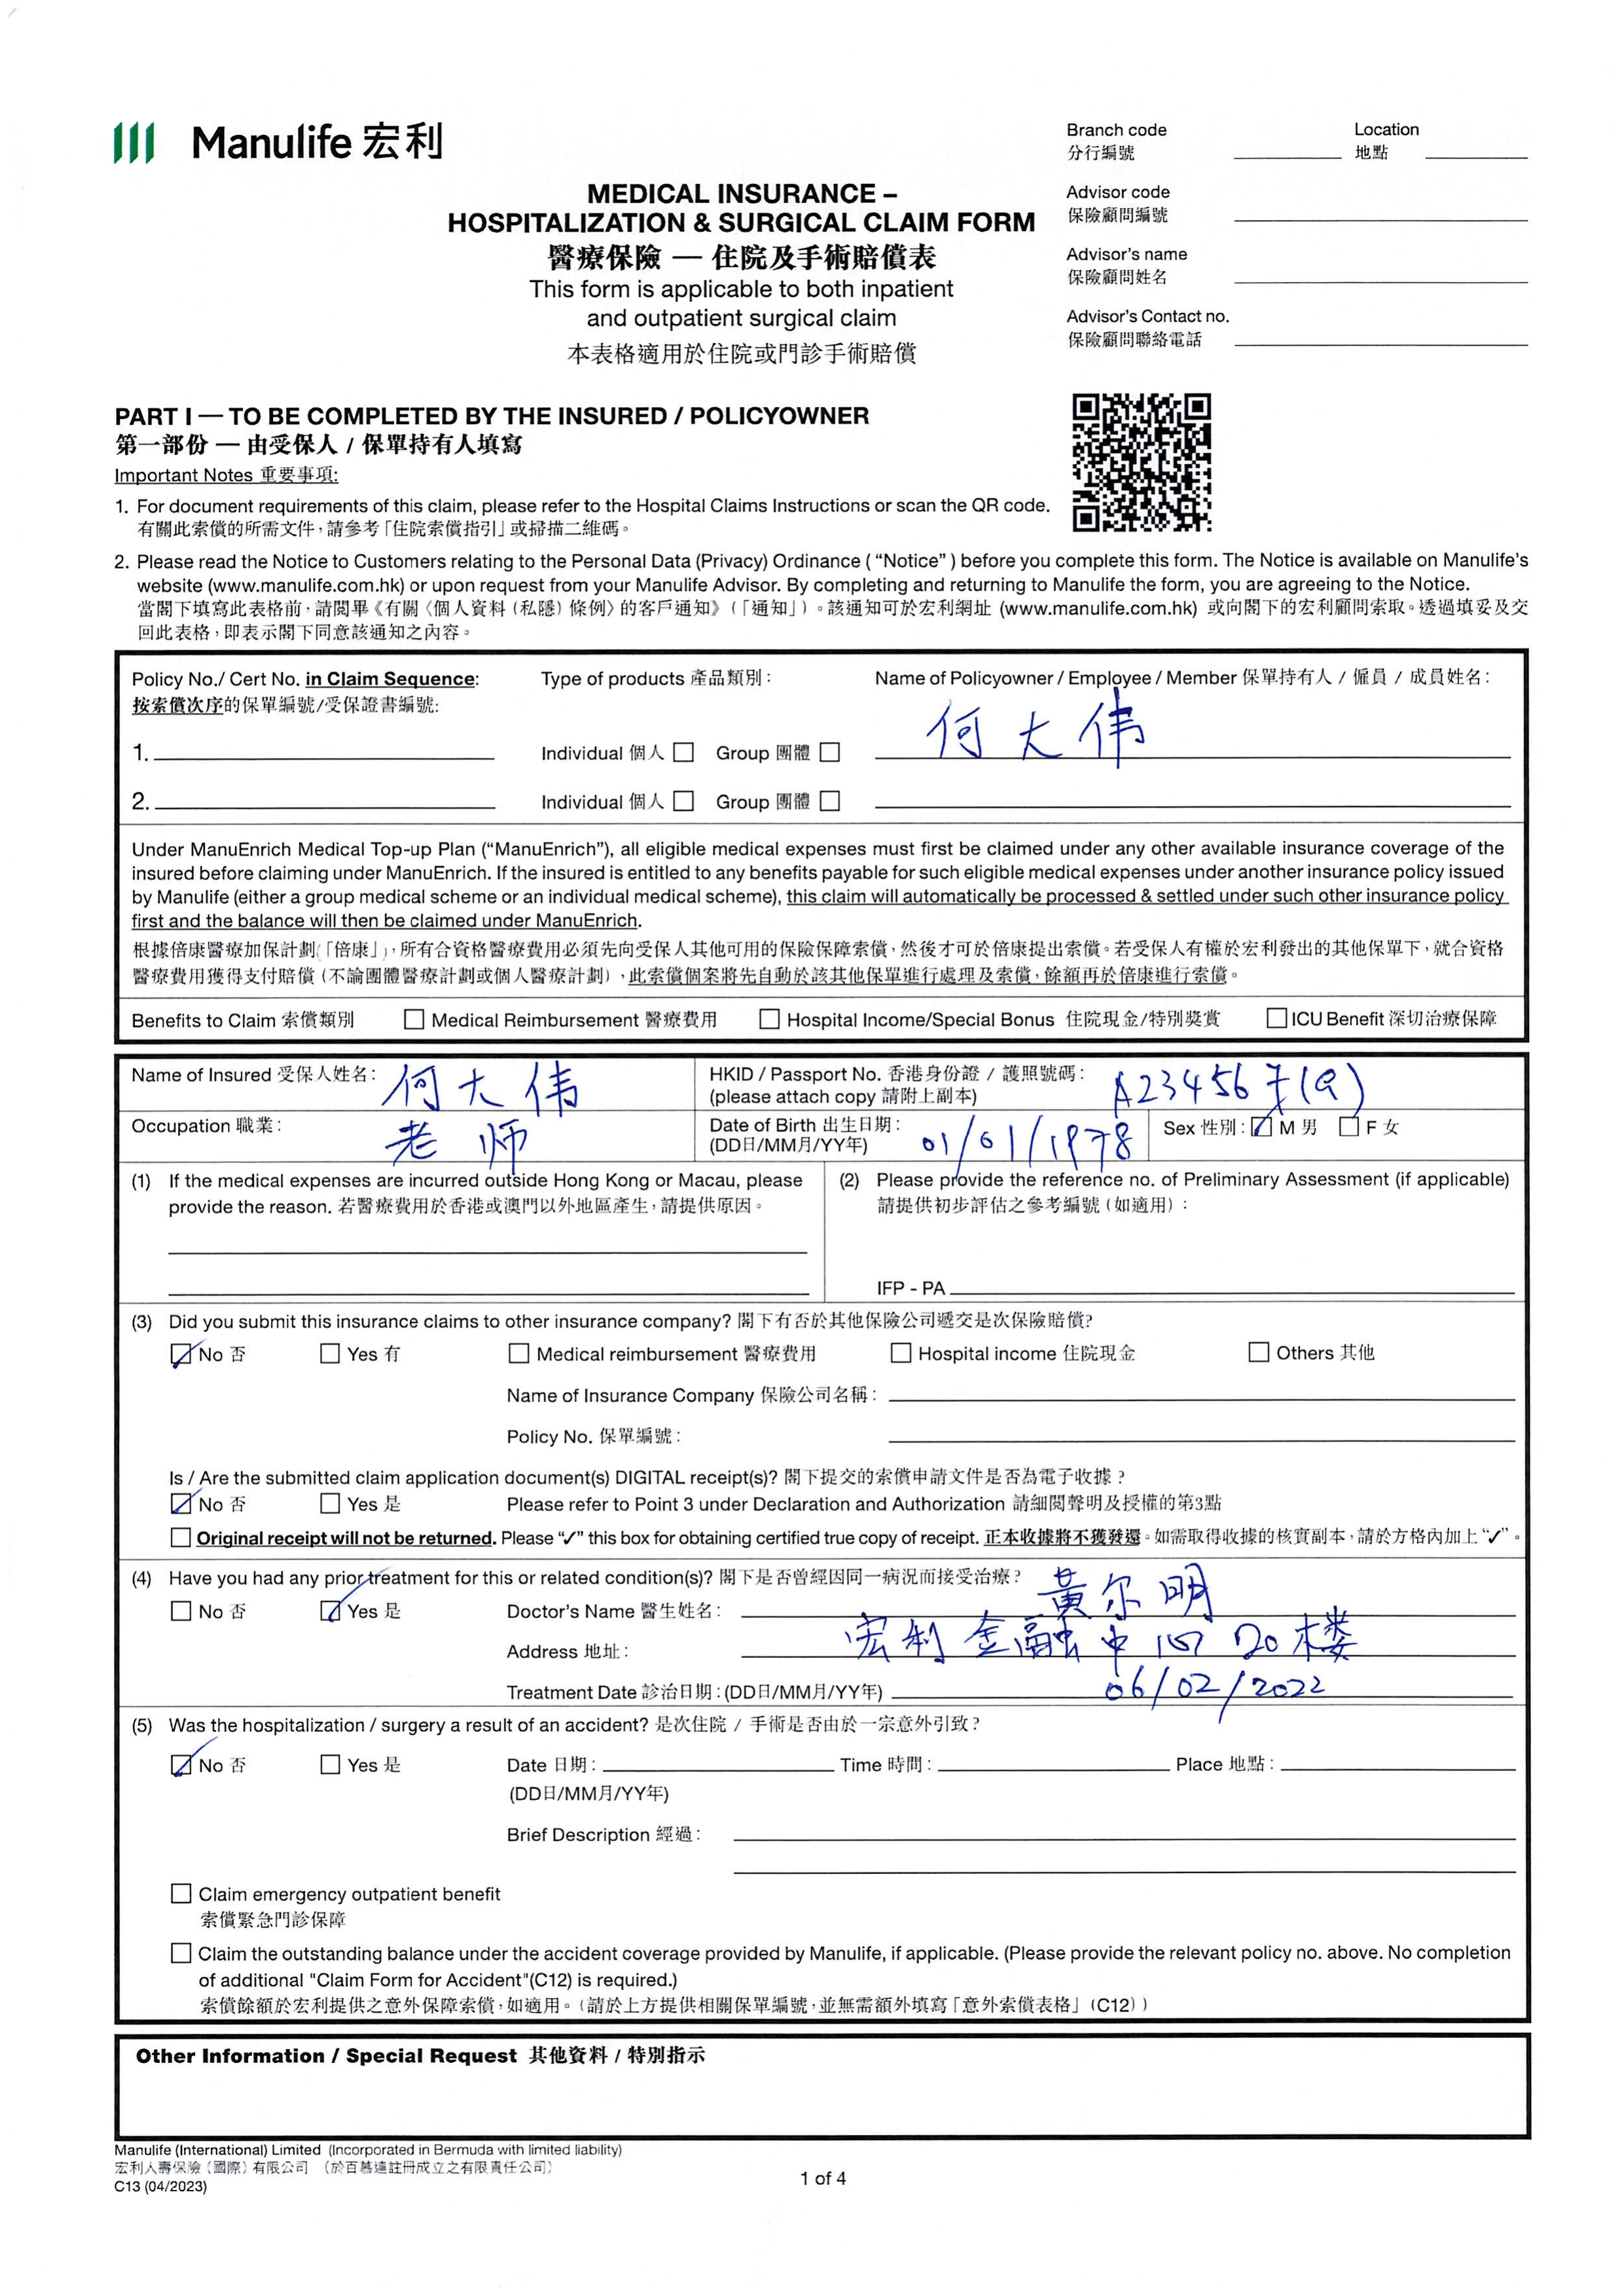 Manulife 宏利
Branch code
分行編號
Location
地點
MEDICAL INSURANCE –
HOSPITALIZATION & SURGICAL CLAIM FORM
醫療保險 — 住院及手術賠償表
This form is applicable to both inpatient
and outpatient surgical claim
本表格適用於住院或門診手術賠償
Advisor code
保險顧問編號
Advisor's name
保險顧問姓名
Advisor's Contact no.
保險顧問聯絡電話
PART I — TO BE COMPLETED BY THE INSURED / POLICYOWNER
第一部份 — 由受保人 / 保單持有人填寫
Important Notes 重要事項:
1. For document requirements of this claim, please refer to the Hospital Claims Instructions or scan the QR code.
有關此索償的所需文件，請參考「住院索償指引」或掃描二維碼。
2. Please read the Notice to Customers relating to the Personal Data (Privacy) Ordinance ( “Notice” ) before you complete this form. The Notice is available on Manulife's
website (www.manulife.com.hk) or upon request from your Manulife Advisor. By completing and returning to Manulife the form, you are agreeing to the Notice.
當閣下填寫此表格前，請閱畢《有關〈個人資料（私隱）條例〉的客戶通知》（「通知」）。該通知可於宏利網址 (www.manulife.com.hk) 或向閣下的宏利顧問索取。透過填妥及交
回此表格，即表示閣下同意該通知之內容。
Policy No./ Cert No. in Claim Sequence:
按索償次序的保單編號/受保證書編號:
Type of products 產品類別：
Name of Policyowner / Employee / Member 保單持有人 / 僱員 / 成員姓名：
1. Individual 個人 Group 團體 何大伟
2. Individual 個人 Group 團體
Under ManuEnrich Medical Top-up Plan (“ManuEnrich”), all eligible medical expenses must first be claimed under any other available insurance coverage of the
insured before claiming under ManuEnrich. If the insured is entitled to any benefits payable for such eligible medical expenses under another insurance policy issued
by Manulife (either a group medical scheme or an individual medical scheme), this claim will automatically be processed & settled under such other insurance policy
first and the balance will then be claimed under ManuEnrich.
根據倍康醫療加保計劃（「倍康」），所有合資格醫療費用必須先向受保人其他可用的保險保障索償，然後才可於倍康提出索償。若受保人有權於宏利發出的其他保單下，就合資格
醫療費用獲得支付賠償（不論團體醫療計劃或個人醫療計劃），此索償個案將先自動於該其他保單進行處理及索償，餘額再於倍康進行索償。
Benefits to Claim 索償類別 Medical Reimbursement 醫療費用 Hospital Income/Special Bonus 住院現金/特別獎賞 ICU Benefit 深切治療保障
Name of Insured 受保人姓名： 何大伟
HKID / Passport No. 香港身份證 / 護照號碼：
(please attach copy 請附上副本)
A234567(9)
Occupation 職業： 老师
Date of Birth 出生日期：
(DD日/MM月/YY年)
01/01/1978
Sex 性別： M 男 F 女
(1) If the medical expenses are incurred outside Hong Kong or Macau, please
provide the reason. 若醫療費用於香港或澳門以外地區產生，請提供原因。
(2) Please provide the reference no. of Preliminary Assessment (if applicable)
請提供初步評估之參考編號（如適用）：
IFP - PA
(3) Did you submit this insurance claims to other insurance company? 閣下有否於其他保險公司遞交是次保險賠償?
No 否 Yes 有 Medical reimbursement 醫療費用 Hospital income 住院現金 Others 其他
Name of Insurance Company 保險公司名稱：
Policy No. 保單編號：
Is / Are the submitted claim application document(s) DIGITAL receipt(s)? 閣下提交的索償申請文件是否為電子收據？
No 否 Yes 是 Please refer to Point 3 under Declaration and Authorization 請細閱聲明及授權的第3點
Original receipt will not be returned. Please “✓” this box for obtaining certified true copy of receipt. 正本收據將不獲發還。如需取得收據的核實副本，請於方格內加上“✓”。
(4) Have you had any prior treatment for this or related condition(s)? 閣下是否曾經因同一病況而接受治療？
No 否 Yes 是 Doctor's Name 醫生姓名： 黃尔明
Address 地址： 宏利金融中心20楼
Treatment Date 診治日期：(DD日/MM月/YY年) 06/02/2022
(5) Was the hospitalization / surgery a result of an accident? 是次住院 / 手術是否由於一宗意外引致？
No 否 Yes 是 Date 日期： Time 時間： Place 地點：
(DD日/MM月/YY年)
Brief Description 經過：
Claim emergency outpatient benefit
索償緊急門診保障
Claim the outstanding balance under the accident coverage provided by Manulife, if applicable. (Please provide the relevant policy no. above. No completion
of additional "Claim Form for Accident"(C12) is required.)
索償餘額於宏利提供之意外保障索償，如適用。（請於上方提供相關保單編號，並無需額外填寫「意外索償表格」（C12））
Other Information / Special Request 其他資料 / 特別指示
Manulife (International) Limited (Incorporated in Bermuda with limited liability)
宏利人壽保險（國際）有限公司 （於百慕達註冊成立之有限責任公司）
C13 (04/2023)
1 of 4